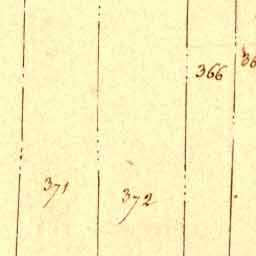 366
371
372